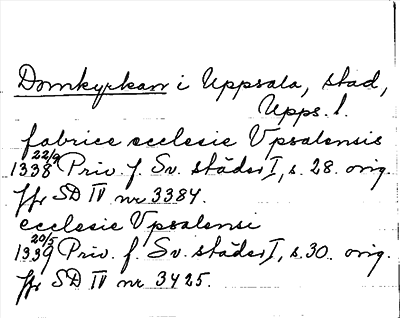 Domkyrkan i Uppsala, stad,
Upps. l.
fabrice ecclesie Vpsalensis
1338 22/9 Priv. f. Sv. städer I, s. 28. orig.
Jfr SD IV nr 3384.
ecclesie Vpsalensi
1339 20/5 Priv. f. Sv. städer I, s. 30. orig.
Jfr SD IV nr 3425.